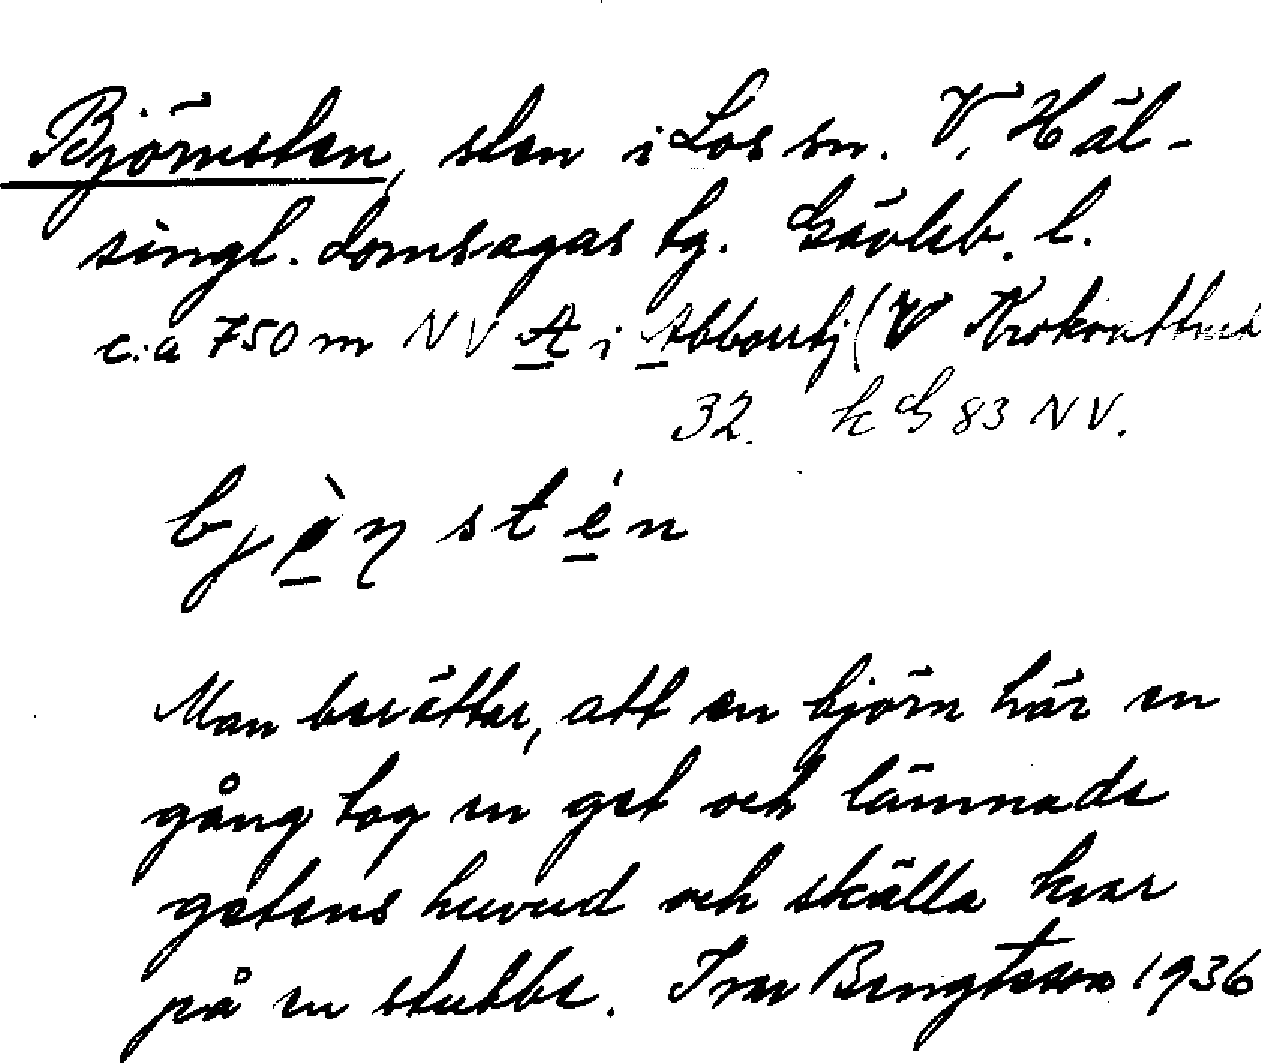 Björnsten, sten i Los sn. V. Häl-
singl. domsagas tg. Gävleb. l.
c:a 750 m NV A i Abborrtj (V
32. k G 83 NV.
bjὲηstén
Man berättar, att en björn här en
gång tog en get och lämnade
getens huvud och skälla kvar
på en stubbe. Ivar Bengtsson 1936